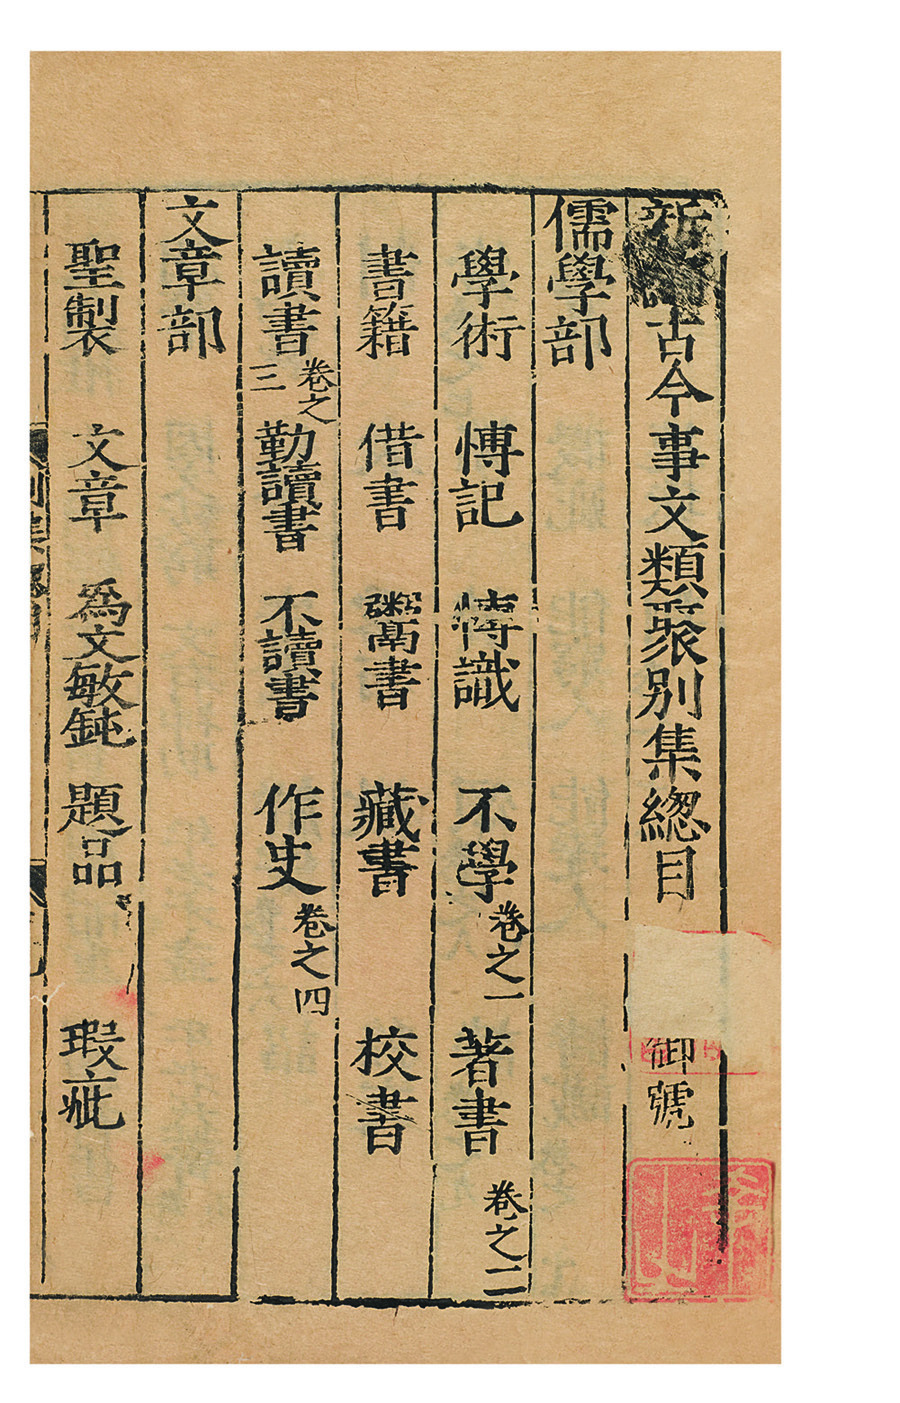 新編古今事文類聚別集總目 御號
儒學部
學術 博記 博識 不學卷之一 著書 卷之二
書籍 借書 鬻書 藏書 校書
讀書卷之三 勤讀書 不讀書 作史卷之四
文章部
聖製 文章 爲文敏鈍 題品 瑕疵